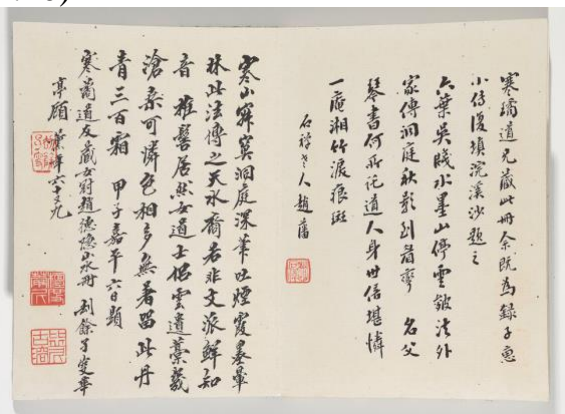 寒璚道兄藏此冊余既為錄子惠
小傳復填浣溪沙題之
六葉吳牋水墨山停雲皴法外
家傳洞庭秋影到眉彎 名父
琴書何所託道人身世倍堪憐
一龕湘竹淚痕斑
石禪老人趙藩
寒山寂寞洞庭深筆吐煙霞墨暈
林此法傳之天水裔若非文派鮮知
音 椎髻居然女道士偶雲遺藁義
滄桑可憐色相多無著留此丹
青三百霜 甲子嘉平六日題
寒璚道友藏女冠趙德 山水冊 劫餘了叟華
亭顧 年六十九